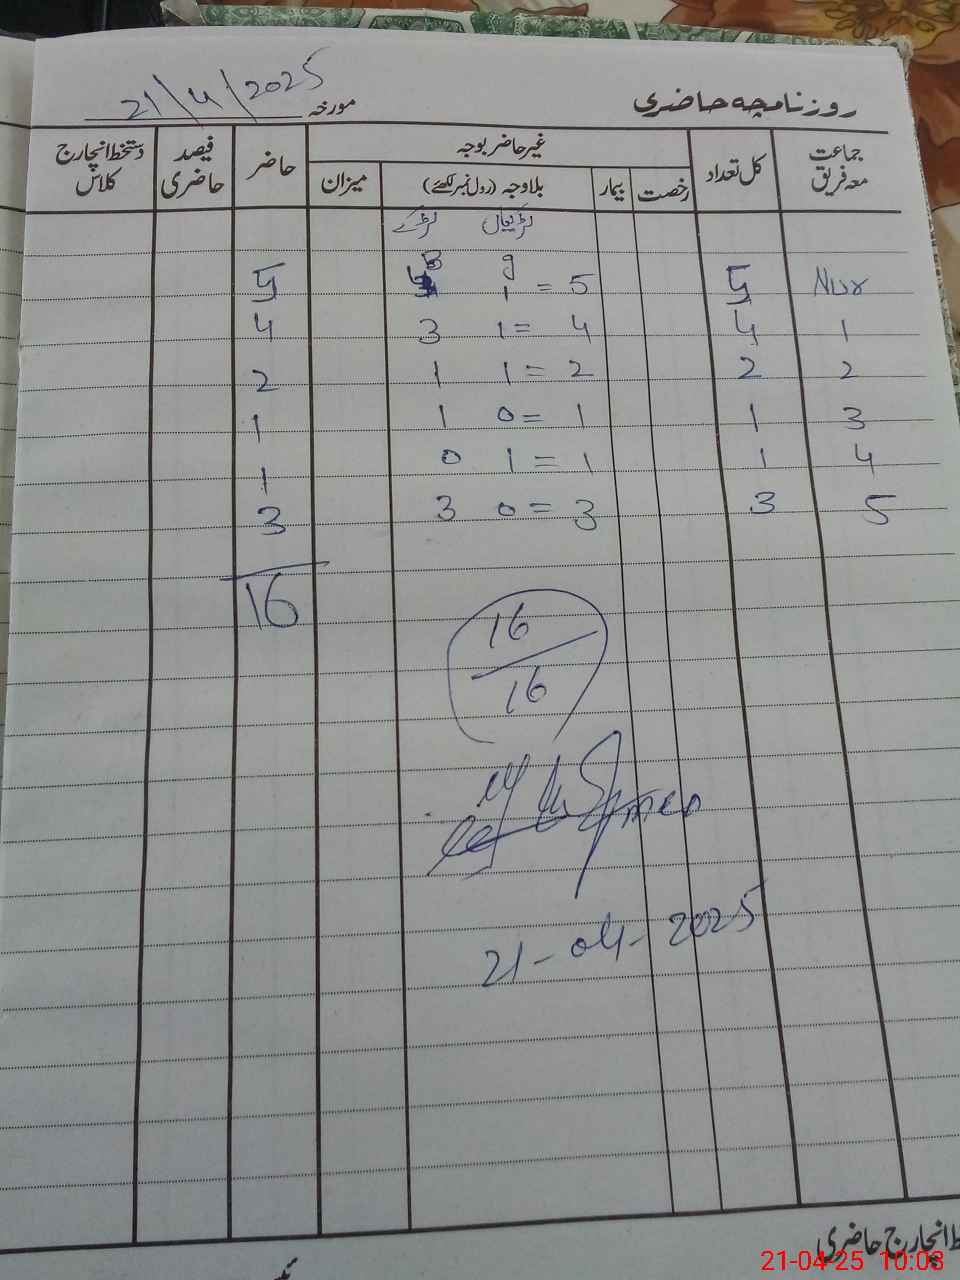 روزنامچہ حاضری
مورخہ 21/4/2025
جماعت معہ فریق کل تعداد غیر حاضر بوجہ حاضر فیصد حاضری دستخط انچارج کلاس
رخصت بیمار بلاوجہ (رول نمبر لکھئے) میزان
لڑکیاں لڑکے
Nur 5 5 = 1 3 5
1 4 4 = 1 3 4
2 2 2 = 1 1 2
3 1 1 = 0 1 1
4 1 1 = 1 0 1
5 3 3 = 0 3 3
16
16/16
21-04-2025
انچارج حاضری
21-04-25 10:03